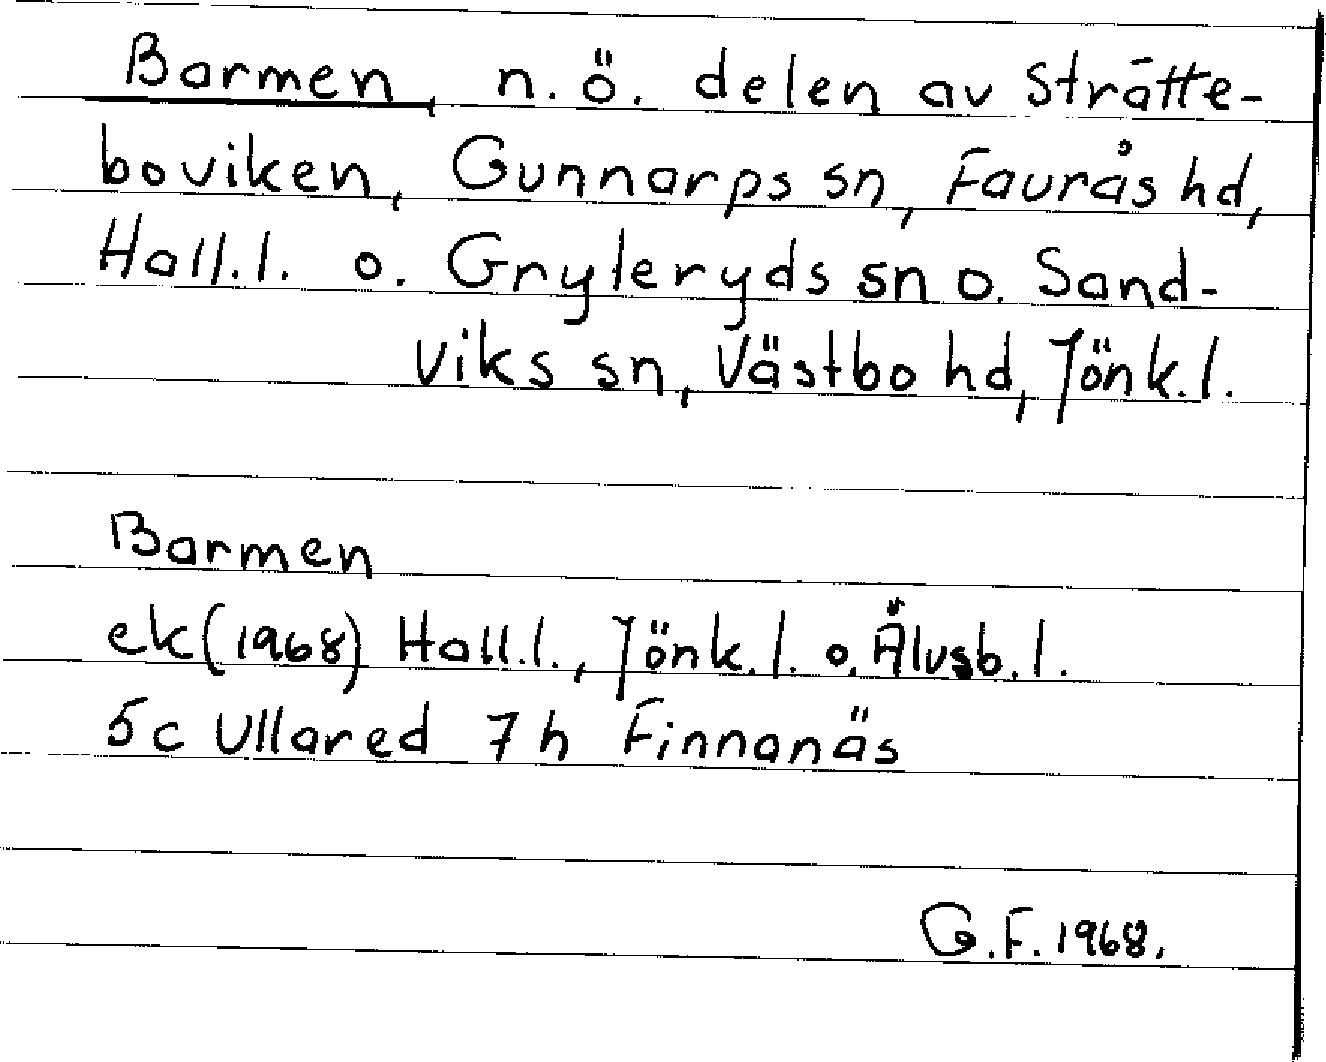 Barmen, n.ö. delen av Stråtte-
boviken, Gunnarps sn, Faurås hd,
Hall.l. o. Gryteryds sn o. Sand-
viks sn, Västbo hd, Jönk.l.
Barmen
ek(1968) Hall.l., Jönk.l. o. Älvsb.l.
5c Ullared 7h Finnanäs
G.F. 1968.